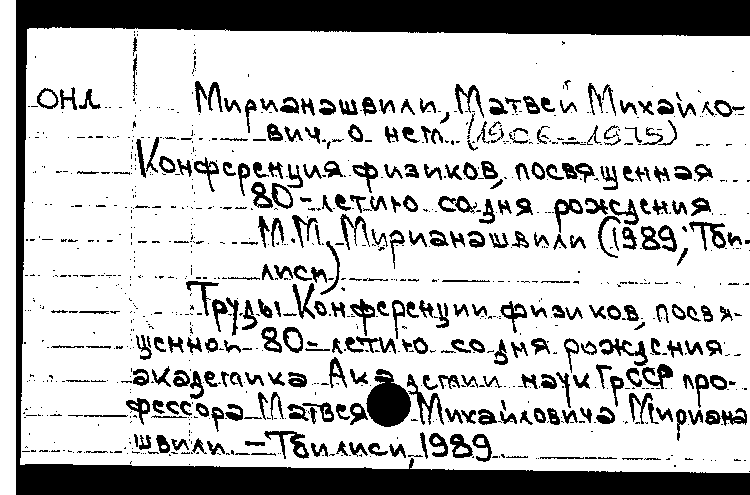 ОНЛ Мирианашвили, Матвей Михайло-
вич, о нем. (1906-1975)
Конференция физиков, посвященная
80-летию со дня рождения
М.М. Мирианашвили (1989; Тби-
лиси)
Труды Конференции физиков, посвя-
щенной 80-летию со дня рождения
академика Академии наук ГрССР про-
фессора Матвея Михайловича Мириана
швили. - Тбилиси, 1989